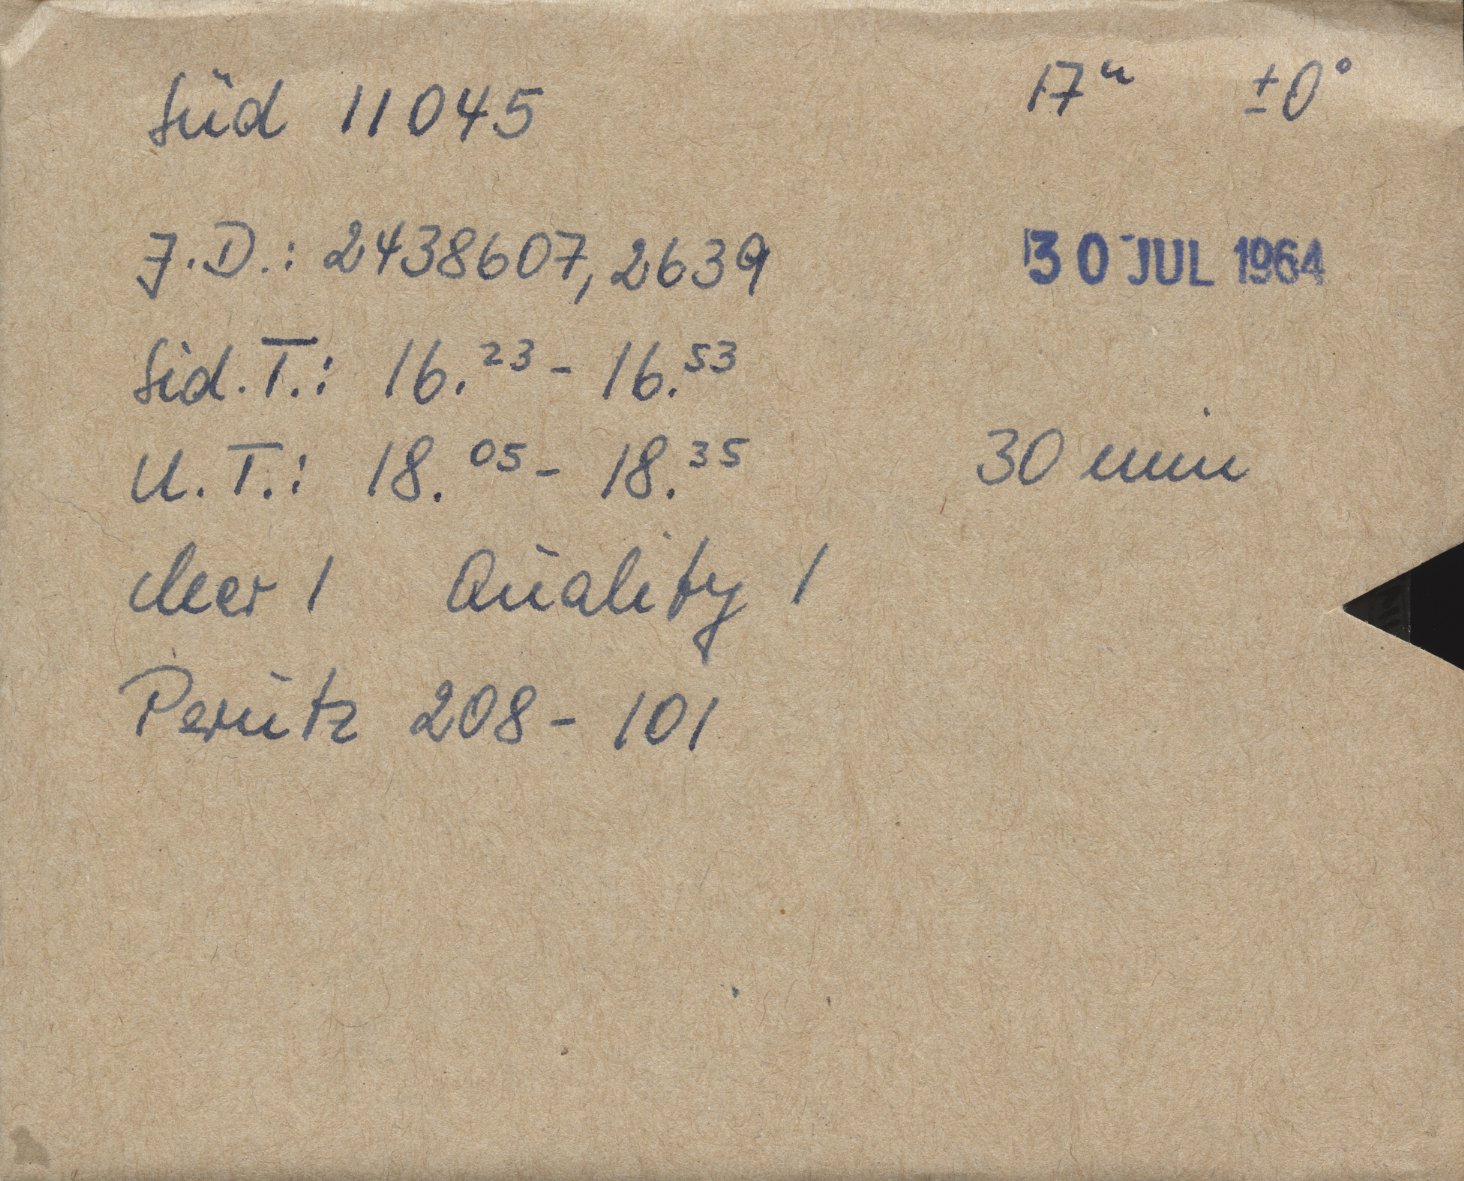 Süd 11045 17ʰ ±0°
J.D.: 2438607,2639 30 JUL 1964
Sid.T.: 16.²³ - 16.⁵³
U.T.: 18.⁰⁵ - 18.³⁵ 30 min
1 Quality 1
Perutz 208 - 101